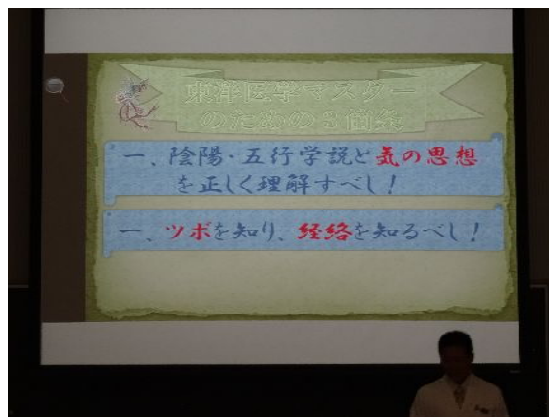 東洋医学マスター
のための3箇条
一、陰陽・五行学説と気の思想
を正しく理解すべし！
一、ツボを知り、経絡を知るべし！